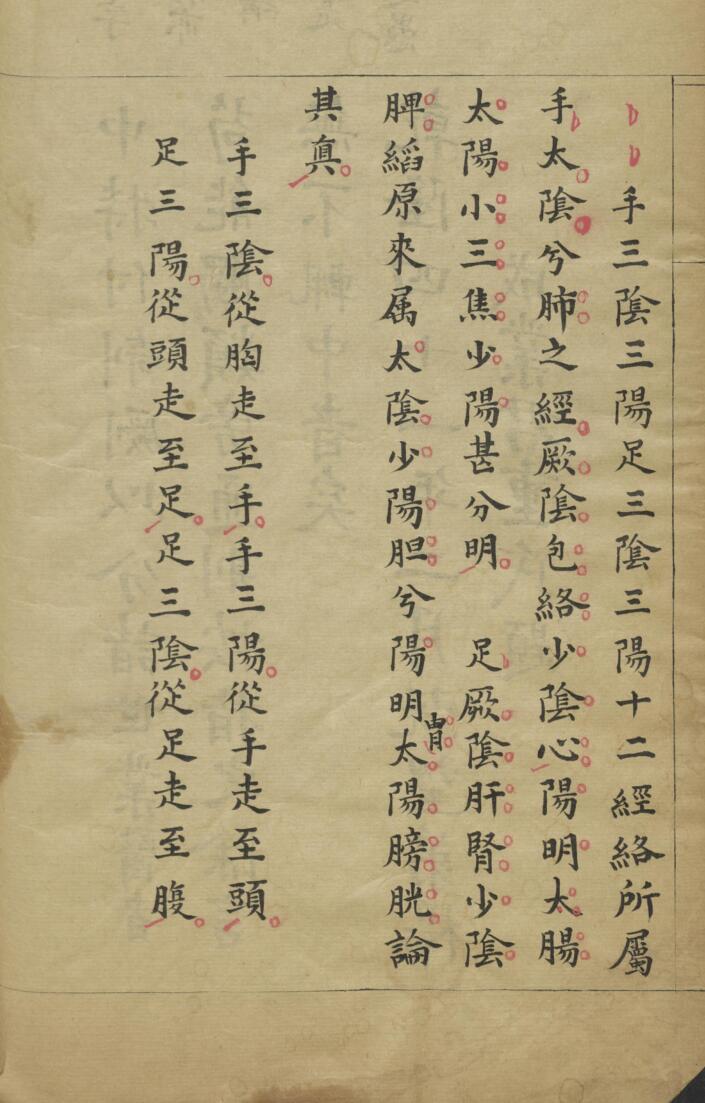 手三陰三陽足三陰三陽十二經絡所屬
手太陰兮肺之經厥陰包絡少陰心陽明太腸
太陽小三焦少陽甚分明　足厥陰肝腎少陰
脾縚原來属太陰少陽胆兮陽明胃太陽膀胱論
其真
手三陰從胸走至手手三陽從手走至頭
足三陽從頭走至足足三陰從足走至腹